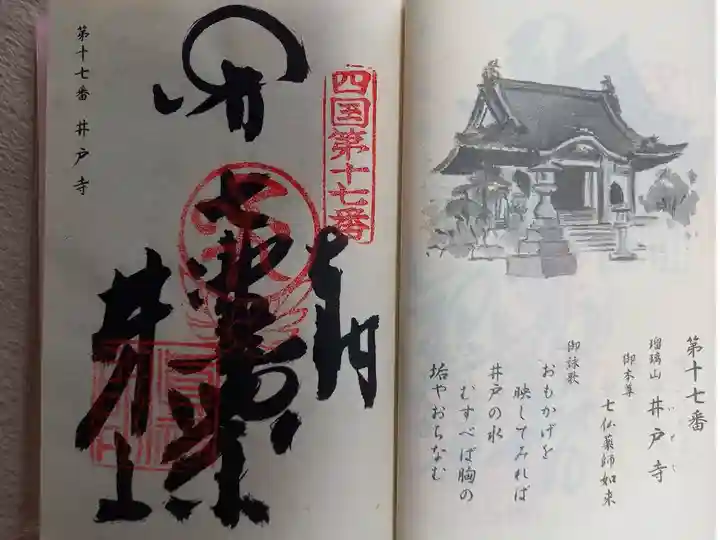 第十七番
瑠璃山 井戸寺
いどじ
御本尊
七仏薬師如来
御詠歌
おもかげを
映してみれば
井戸の水
むすべば胸の
垢やおちなむ
四国第十七番
奉納
七佛薬師如来
井戸寺
第十七番 井戸寺